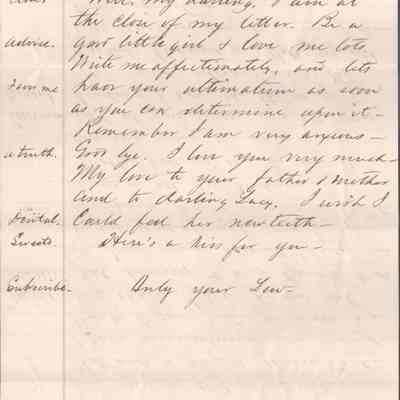 Well, my darling, I am at
the close of my letter. Be a
Advice. good little girl & love me lots.
Write me affectionately, and lets
From me hear your ultimatum as soon
as you can determine upon it –
Remember I am very anxious –
a truth. Good bye. I love you very much –
My love to your father & mother
and to darling Lucy. I wish I
Dental. Could feel her new teeth –
Sweets. Here's a kiss for you –
Subscribe. Only your Lew –